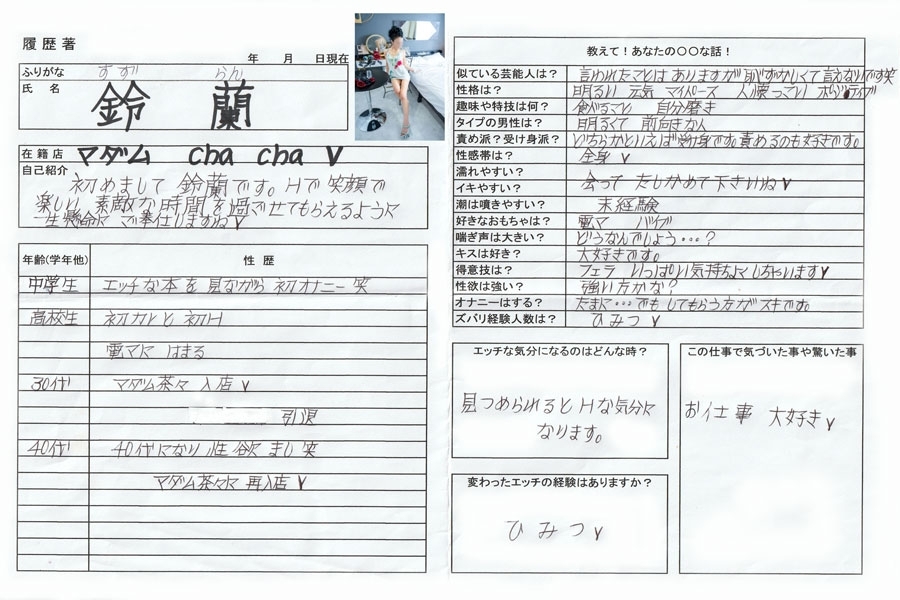 履歴著
年 月 日現在
ふりがな すず らん
氏 名 鈴 蘭
在籍店 マダム cha cha
自己紹介
初めまして 鈴蘭です。Hで笑顔で
楽しい 素敵な時間を過ごせてもらえるように
一生懸命に ご奉仕しますね
年齢(学年他) 性 歴
30代 マダム茶々 入店
引退
40代 40代になり 性欲 まし 笑
マダム茶々に 再入店
教えて！あなたの〇〇な話！
似ている芸能人は？ 言われたことは ありますが 恥ずかしくて 言えないです笑
性格は？ 明るい 元気 マイペース 人懐っこい ポジティブ
趣味や特技は何？ 食べること 自分磨き
タイプの男性は？ 明るくて 前向きな人
責め派？受け身派？ どちらかといえば 受け身です。責めるのも好きです。
性感帯は？ 全身
濡れやすい？
イキやすい？ 会って たしかめて 下さいね
潮は噴きやすい？ 未経験
好きなおもちゃは？ 電マ バイブ
喘ぎ声は大きい？ どうなんでしょう・・・？
キスは好き？ 大好きです。
得意技は？ フェラ いっぱい 気持ちよくしちゃいます
性欲は強い？ 強い方かな？
オナニーはする？ たまに・・・でも してもらう方が スキです。
ズバリ経験人数は？ ひみつ
エッチな気分になるのはどんな時？
見つめられると Hな気分に
なります。
変わったエッチの経験はありますか？
ひ み つ
この仕事で気づいた事や驚いた事
お仕事 大好き